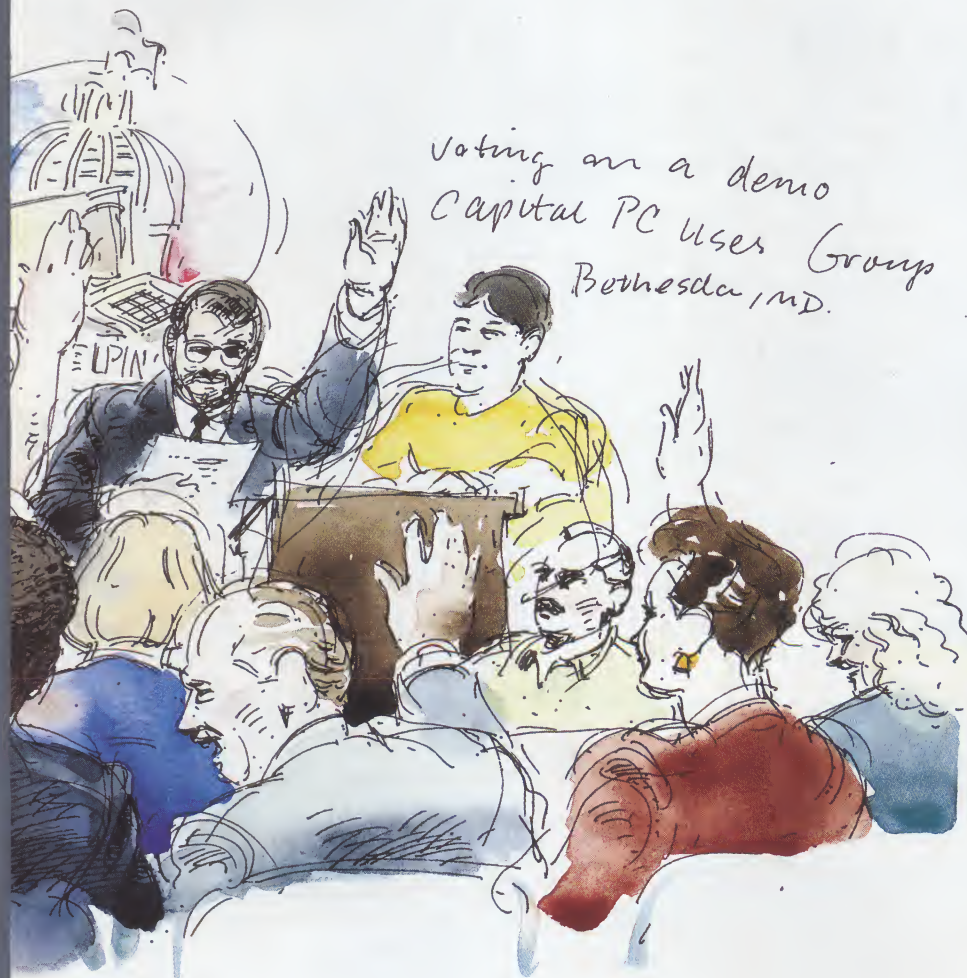 voting on a demo
Capital PC Users Group
Bethesda, MD.
ELPIN